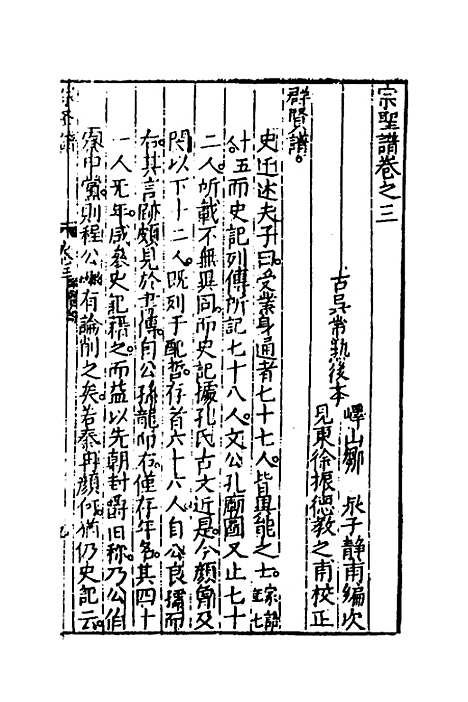 宗聖譜卷之三
古吳常熟後本 嶧山鄒 泉子靜甫編次
見東徐振德敎之甫校正
群賢譜
史迁述夫子曰受業身通者七十七人皆異能之士家語七
十五而史記列傳所記七十八人文公孔廟圖又止七十
二人所載不無異同而史記據孔氏古文近是今顏曾及
閔以下十二人既列于配哲存首六十六人自公良孺而
右其言跡頗見於書傳自公孫龍而右僅存年名其四十
一人旡年咸叅史記籍之而益以先朝封爵旧称乃公伯
寮申黨則程公有論削之矣若秦冉顏何猶仍史記云